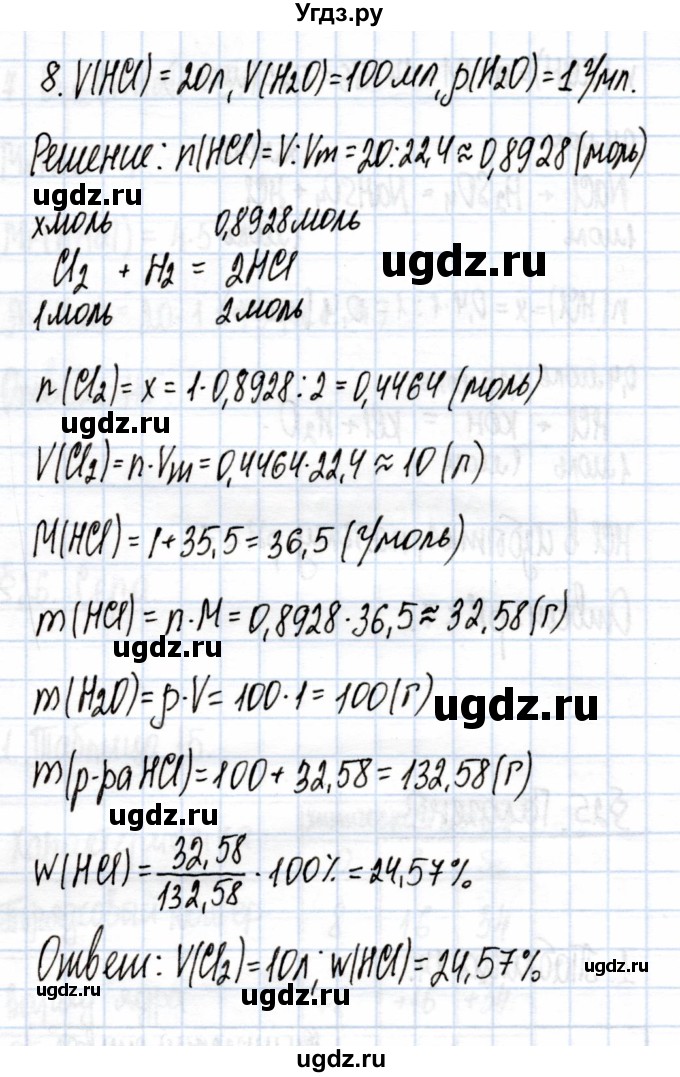 Угдз.ру
8. V(HCl) = 20л, V(H2O) = 100мл, ρ(H2O) = 1 г/мл.
Решение: n(HCl) = V : Vm = 20 : 22,4 ≈ 0,8928 (моль)
ugdz.ru
xмоль 0,8928моль
ugdz.ru
Cl2 + H2 = 2HCl
1моль 2моль
n(Cl2) = x = 1·0,8928 : 2 = 0,4464 (моль)
ugdz.ru
V(Cl2) = n·Vm = 0,4464·22,4 ≈ 10 (л)
M(HCl) = 1 + 35,5 = 36,5 (г/моль)
m(HCl) = n·M = 0,8928·36,5 ≈ 32,58 (г)
ugdz.ru
m(H2O) = ρ·V = 100·1 = 100 (г)
ugdz.ru
m(р-ра HCl) = 100 + 32,58 = 132,58 (г)
ugdz.ru
w(HCl) = 32,58 / 132,58 · 100% = 24,57%
Ответ: V(Cl2) = 10л; w(HCl) = 24,57%
ugdz.ru ugdz.ru
ugdz.ru